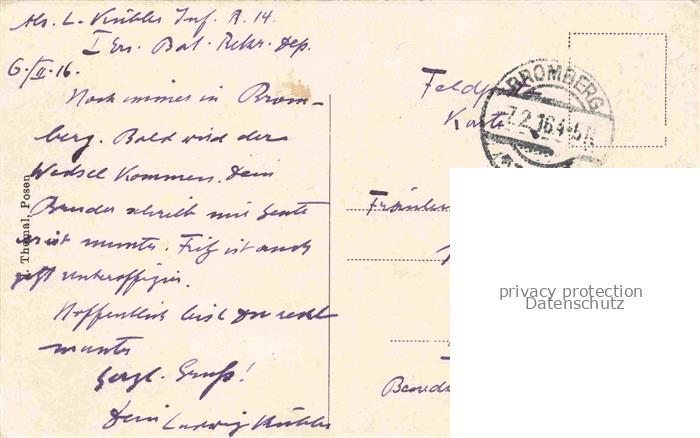 Abs. L. Kübler Inf. R. 14.
I Ers. Bat. Rekr. Dep.
6./II.16.
Noch immer in Brom-
berg. Bald wird der
Wechsel kommen. Dein
Bruder schrieb mir heute
er ist munter. Fritz ist auch
jetzt Unteroffizier.
Hoffentlich bist Du recht
munter
Herzl. Gruß!
Dein Ludwig Kübler
Thomal, Posen
Feldpost-
Karte
BROMBERG
7.2.16.4-5
Fräulein
privacy protection
Datenschutz